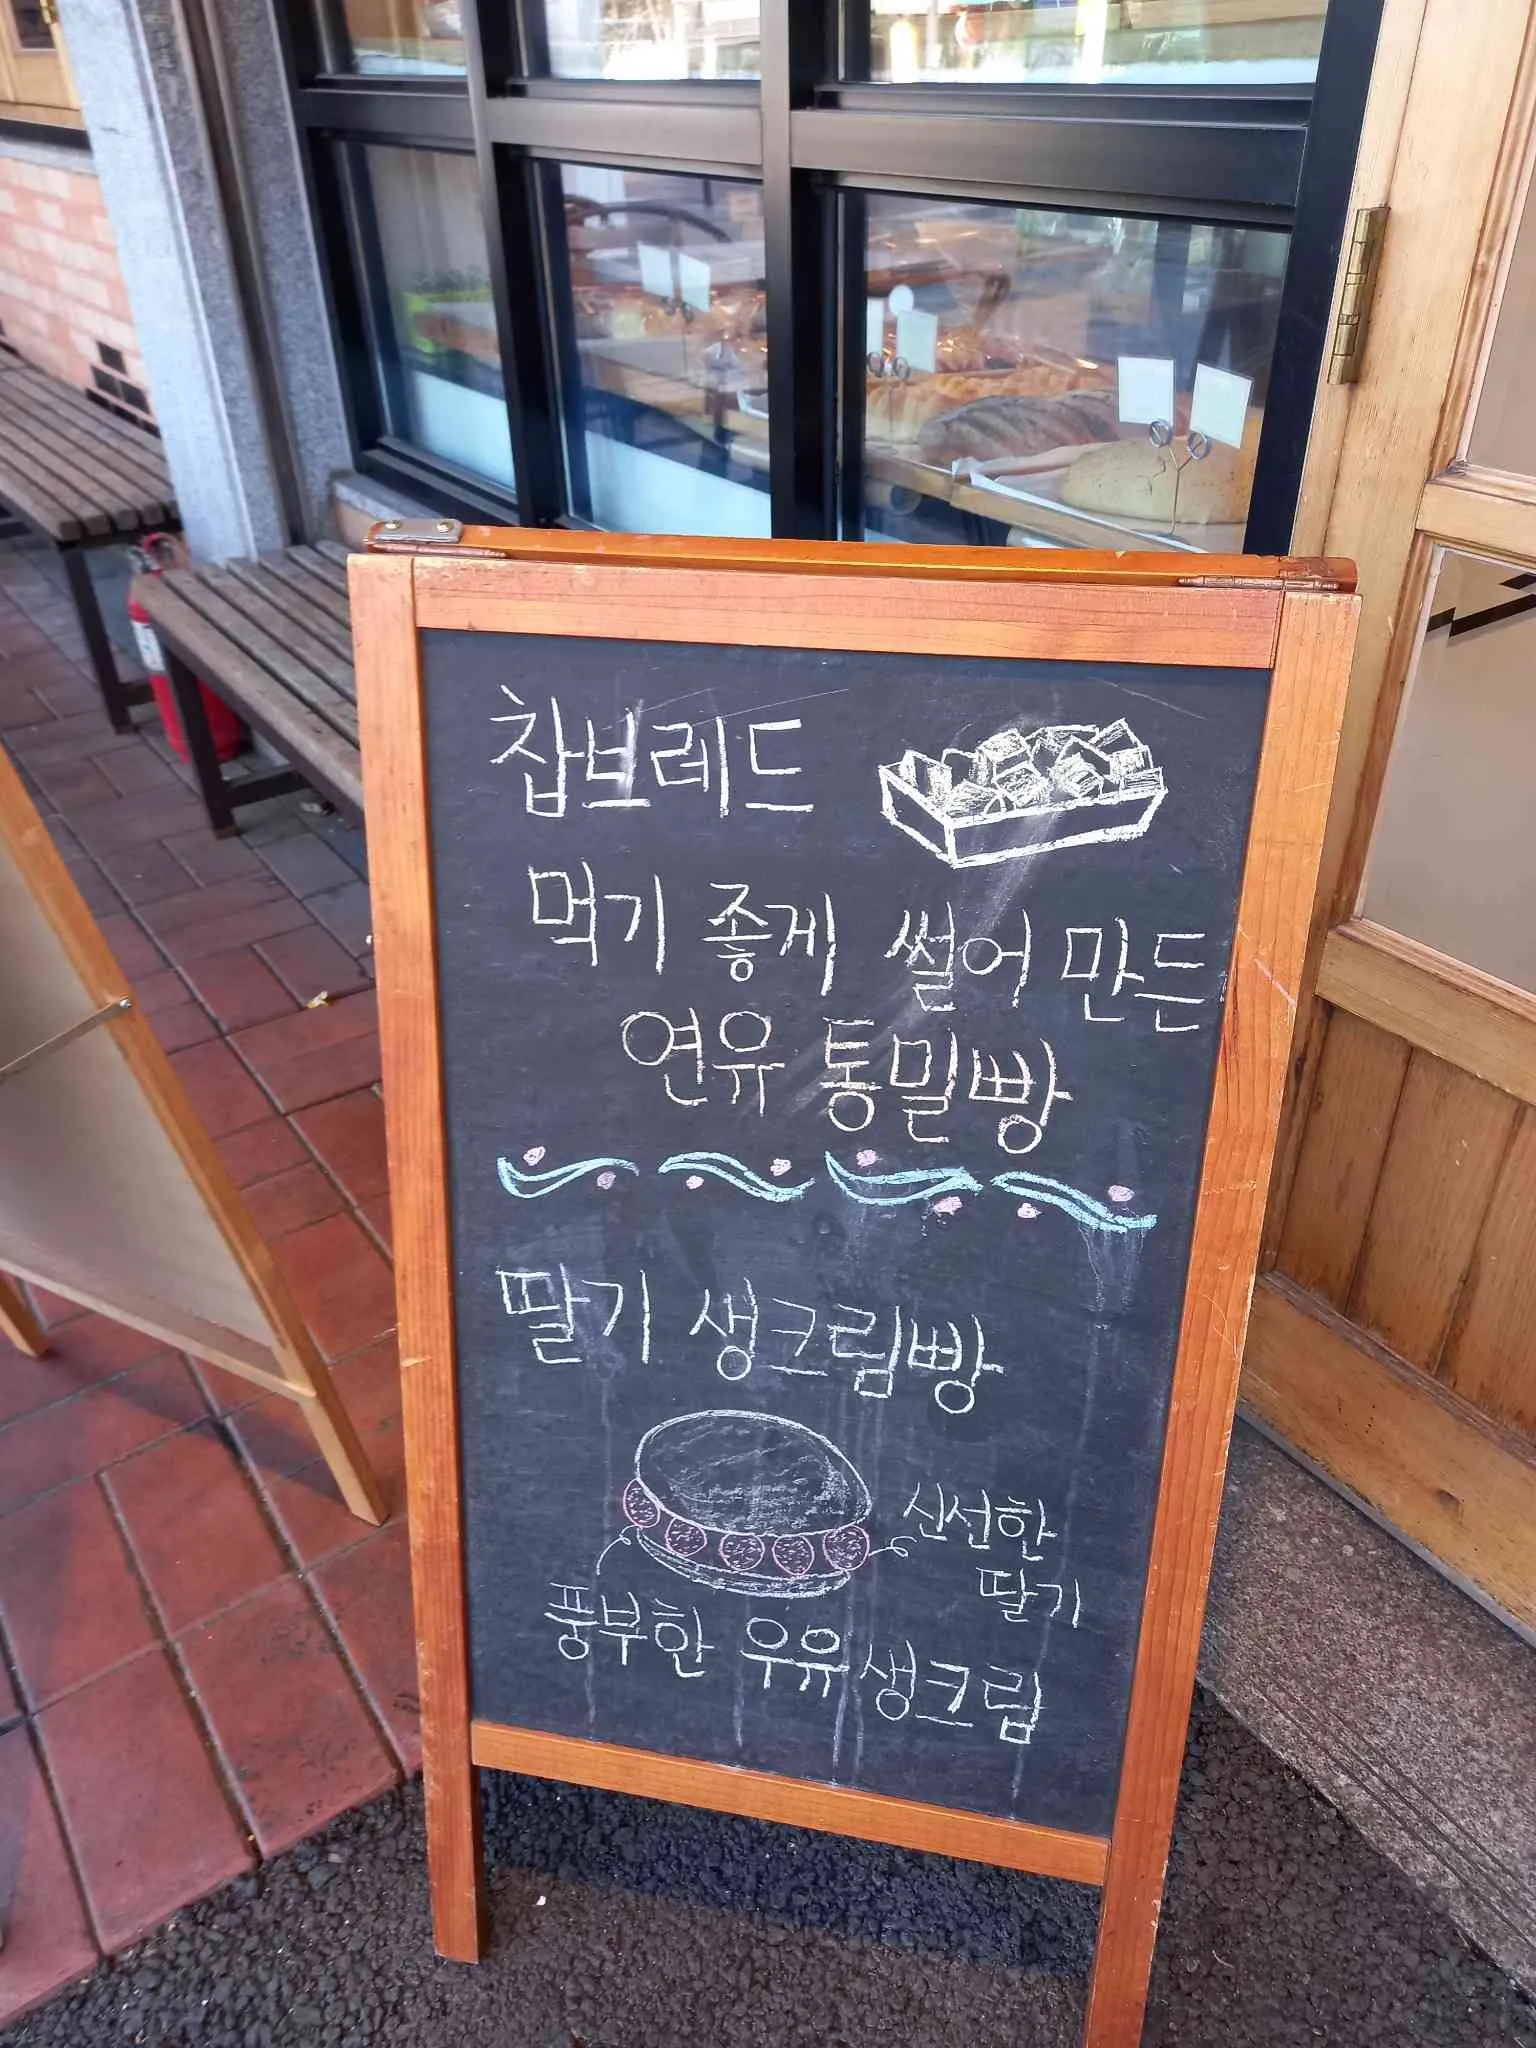 찹브레드
먹기 좋게 썰어 만든
연유 통밀빵
딸기 생크림빵
신선한
딸기
풍부한 우유생크림